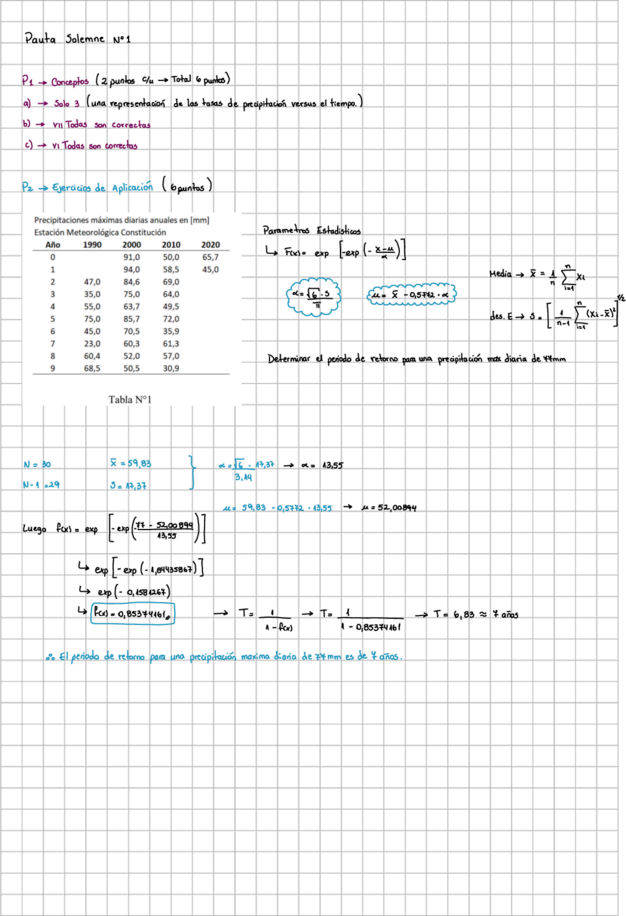 Pauta Solemne N°1
P1 → Conceptos (2 puntos c/u → Total 6 puntos)
a) → Solo 3 (una representación de las tasas de precipitación versus el tiempo.)
b) → VII Todas son correctas
c) → VI Todas son correctas
P2 → Ejercicios de Aplicación (6 puntos)
Precipitaciones máximas diarias anuales en [mm]
Estación Meteorológica Constitución
Año 1990 2000 2010 2020
0 91,0 50,0 65,7
1 94,0 58,5 45,0
2 47,0 84,6 69,0
3 35,0 75,0 64,0
4 55,0 63,7 49,5
5 75,0 85,7 72,0
6 45,0 70,5 35,9
7 23,0 60,3 61,3
8 60,4 52,0 57,0
9 68,5 50,5 30,9
Tabla N°1
Parametros Estadisticos
↳ F(x) = exp [-exp(-(x-μ)/α)]
α = √6 · S / π
μ = x̄ - 0,5772 · α
Media → x̄ = 1/n ∑ⁿᵢ₌₁ xi
des. E → S = [1/(n-1) ∑ⁿᵢ₌₁ (xi - x̄)²]^1/2
Determinar el periodo de retorno para una precipitación max diaria de 77mm
N = 30 x̄ = 59,83 α = √6 · 17,37 / 3,14 → α = 13,55
N-1 = 29 S = 17,37
μ = 59,83 - 0,5772 · 13,55 → μ = 52,00894
Luego f(x) = exp [-exp(-(77 - 52,00894)/13,55)]
↳ exp [-exp (-1,84435867)]
↳ exp (-0,1581267)
↳ f(x) = 0,85374161 → T = 1/(1 - f(x)) → T = 1/(1 - 0,85374161) → T = 6,83 ≈ 7 años
∴ El periodo de retorno para una precipitación maxima diaria de 77mm es de 7 años.